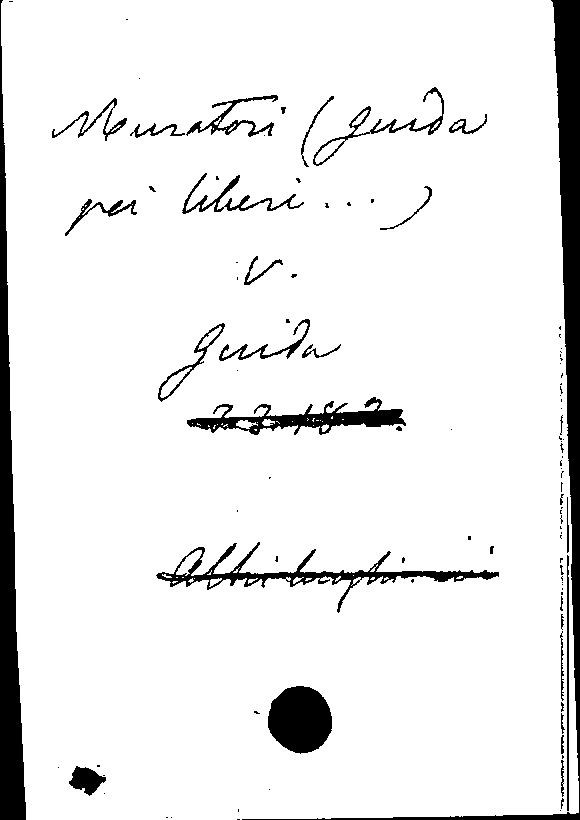 Muratori (Guida
pei liberi...)
V.
Guida
Altri luoghi ivi